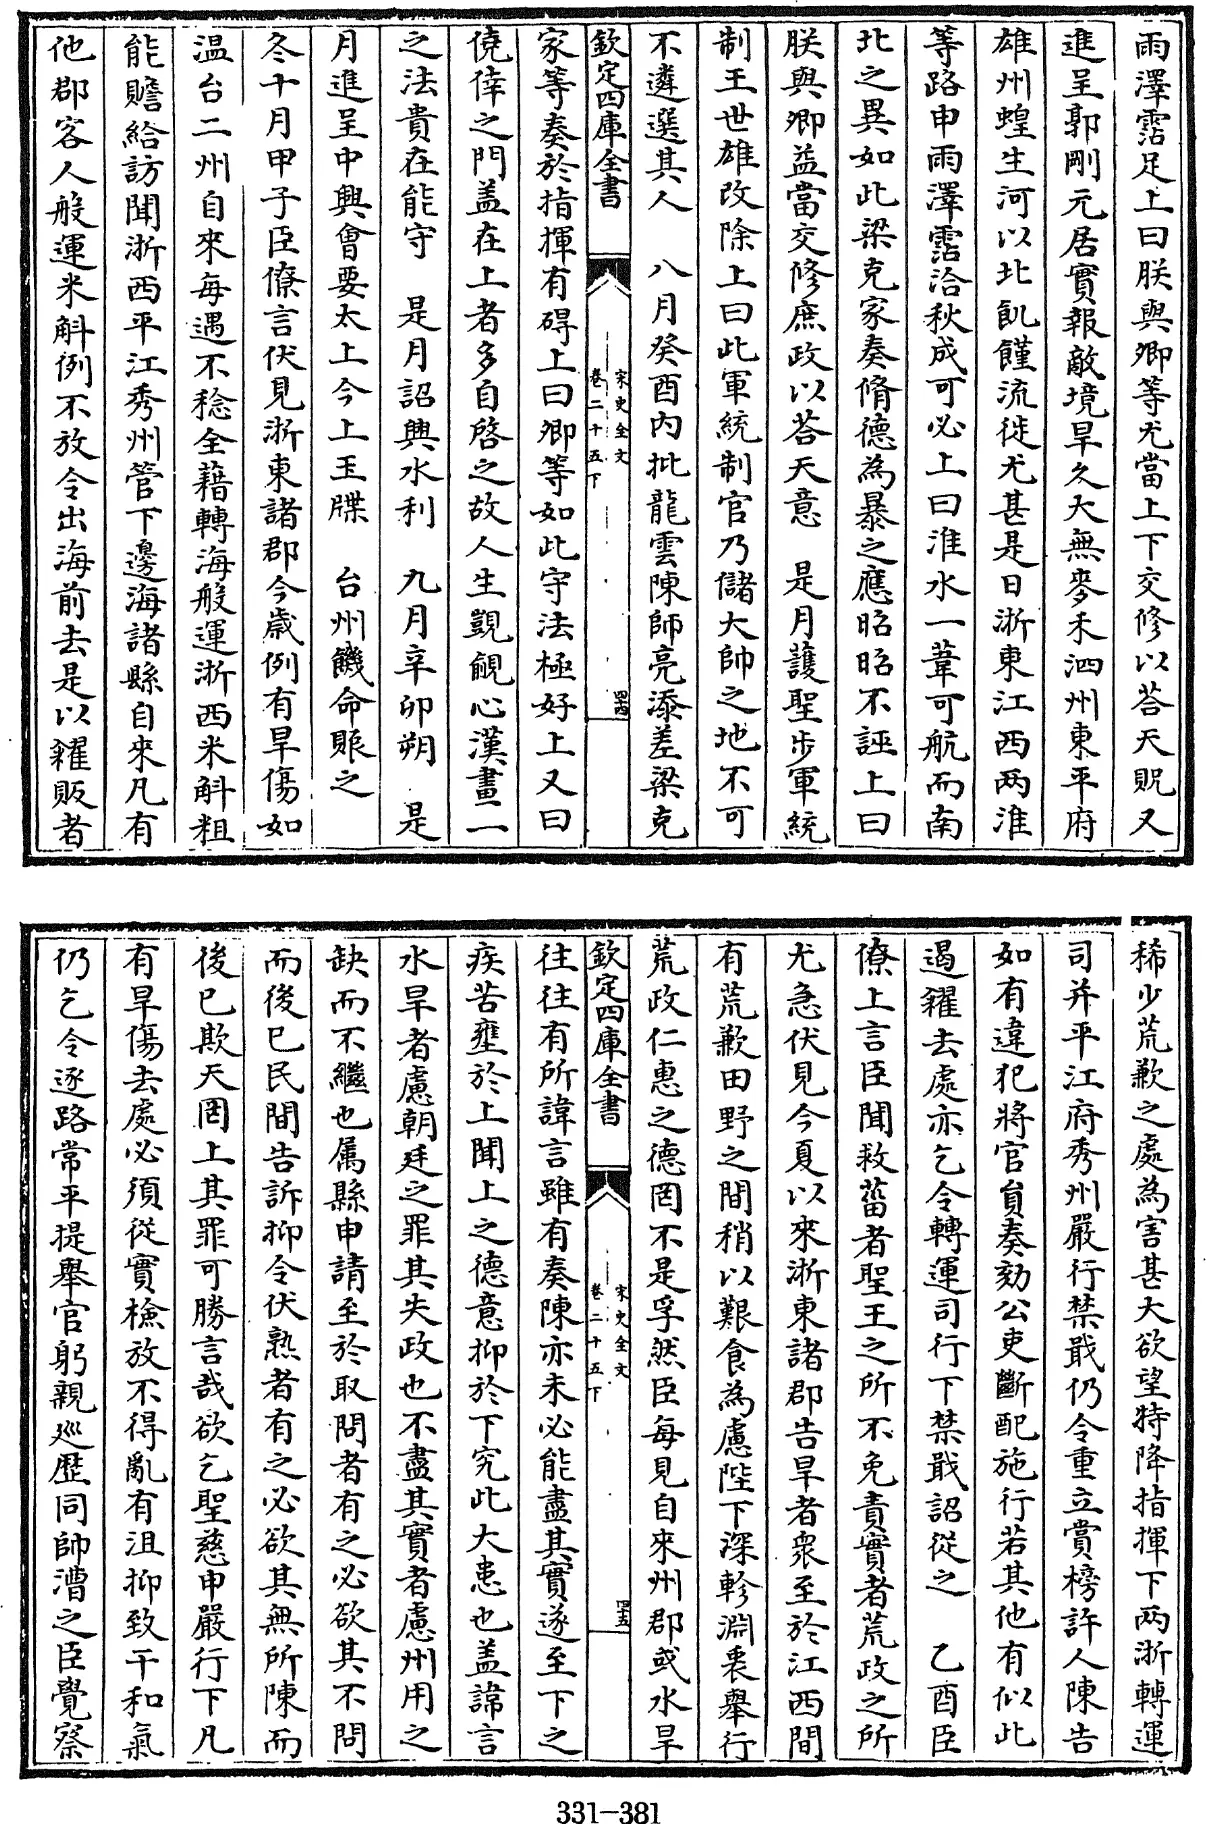 雨澤霑足上曰朕與卿等尤當上下交修以荅天貺又
進呈郭剛元居實報敵境旱久大無麥禾泗州東平府
雄州蝗生河以北飢饉流徙尤甚是日浙東江西兩淮
等路申雨澤霑洽秋成可必上曰淮水一葦可航而南
北之異如此梁克家奏脩德為暴之應昭昭不誣上曰
朕與卿益當交修庶政以荅天意　是月護聖步軍統
制王世雄改除上曰此軍統制官乃儲大帥之地不可
不遴選其人　八月癸酉內批龍雲陳師亮添差梁克
欽定四庫全書
宋史全文
卷二十五下
四十四
家等奏於指揮有碍上曰卿等如此守法極好上又曰
僥倖之門盖在上者多自啓之故人生覬覦心漢畫一
之法貴在能守　是月詔興水利　九月辛卯朔　是
月進呈中興會要太上今上玉牒　台州饑命賑之
冬十月甲子臣僚言伏見浙東諸郡今歲例有旱傷如
温台二州自來每遇不稔全藉轉海般運浙西米斛粗
能贍給訪聞浙西平江秀州管下邊海諸縣自來凡有
他郡客人般運米斛例不放令出海前去是以糴販者
稀少荒歉之處為害甚大欲望特降指揮下兩浙轉運
司并平江府秀州嚴行禁戢仍令重立賞榜許人陳告
如有違犯將官員奏劾公吏斷配施行若其他有似此
遏糴去處亦乞令轉運司行下禁戢詔從之　乙酉臣
僚上言臣聞救菑者聖王之所不免責實者荒政之所
尤急伏見今夏以來浙東諸郡告旱者衆至於江西間
有荒歉田野之間稍以艱食為慮陛下深軫淵衷舉行
荒政仁惠之德罔不是孚然臣每見自來州郡或水旱
欽定四庫全書
宋史全文
卷二十五下
四十五
往往有所諱言雖有奏陳亦未必能盡其實遂至下之
疾苦壅於上聞上之德意抑於下究此大患也盖諱言
水旱者慮朝廷之罪其失政也不盡其實者慮州用之
缺而不繼也属縣申請至於取問者有之必欲其不問
而後已民間告訴抑令伏熟者有之必欲其無所陳而
後已欺天罔上其罪可勝言哉欲乞聖慈申嚴行下凡
有旱傷去處必須從實檢放不得亂有沮抑致干和氣
仍乞令逐路常平提舉官躬親廵歷同帥漕之臣覺察
331-381